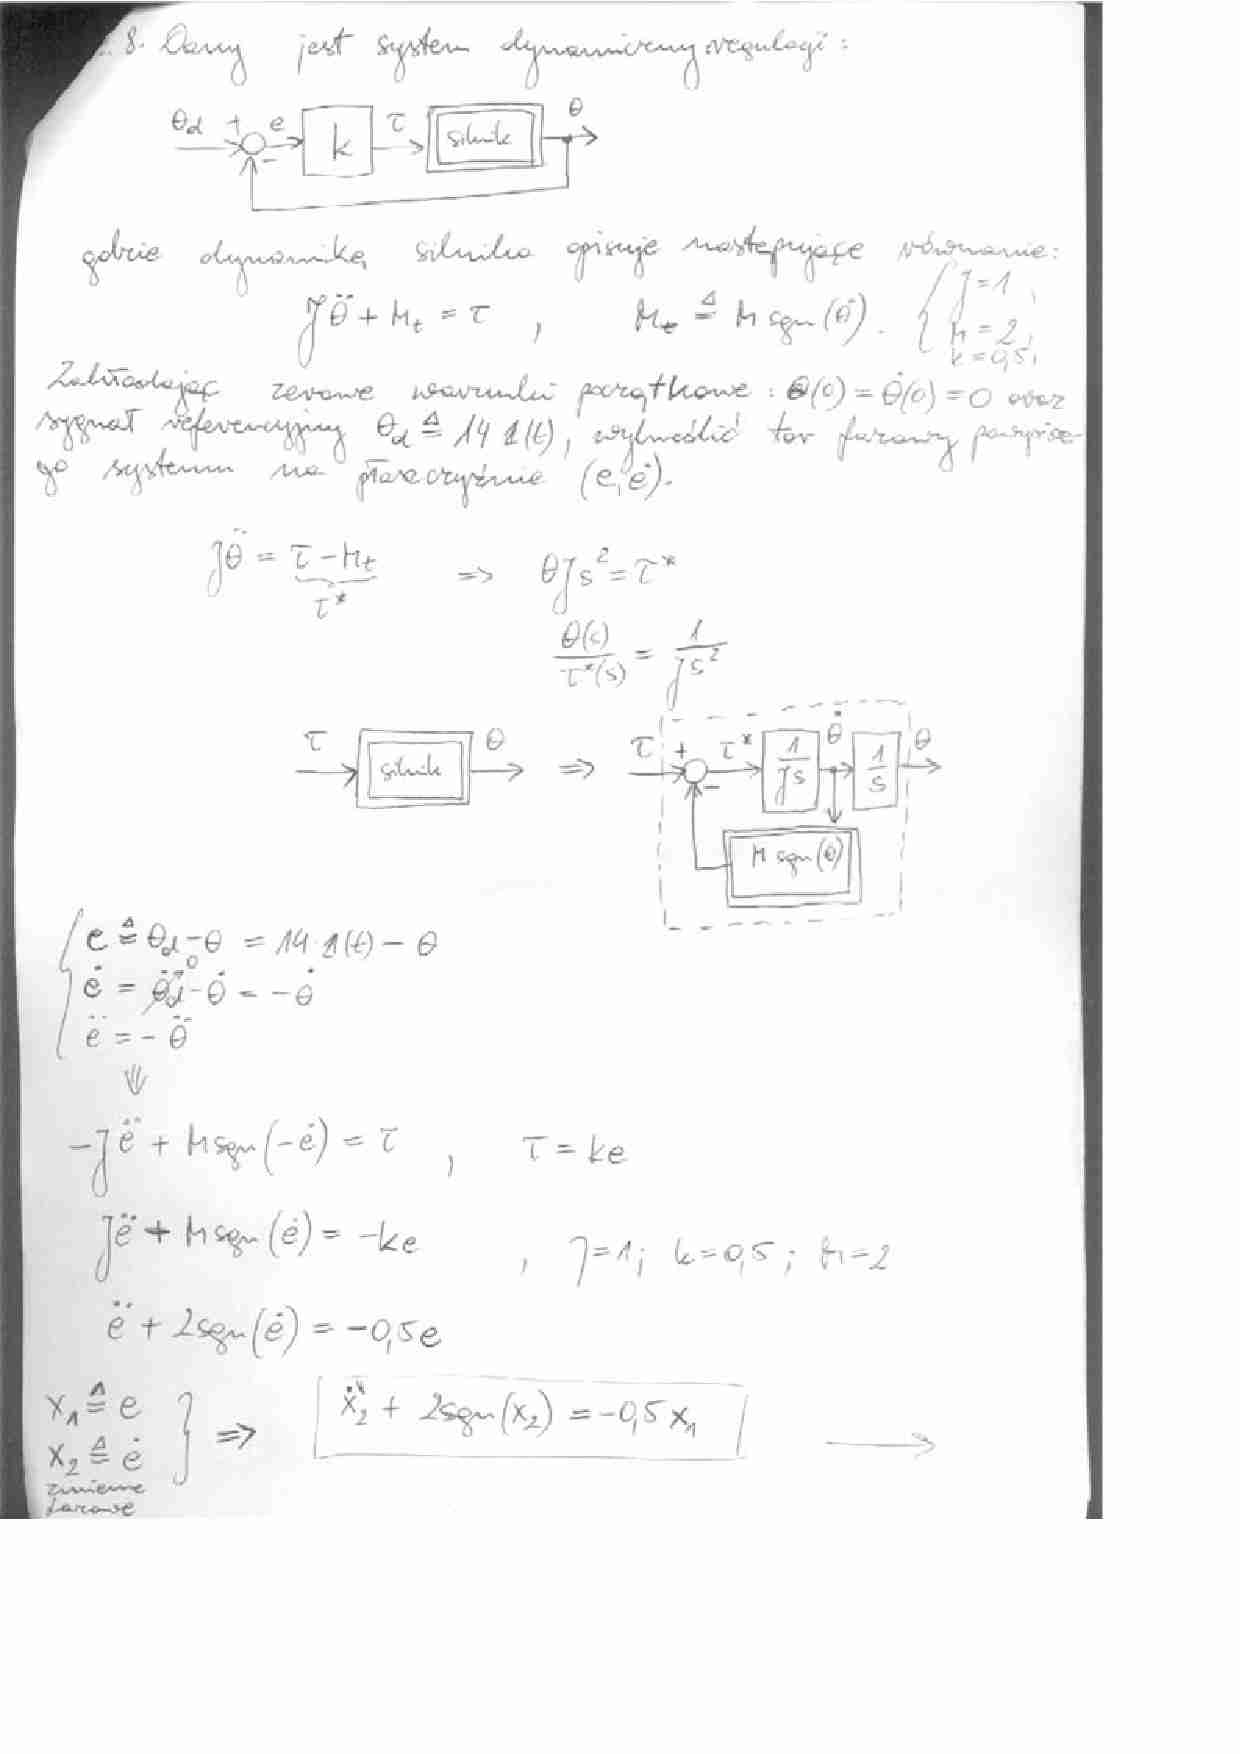 8. Dany jest system dynamiczny regulacji:
θd + e k τ silnik θ
-
gdzie dynamikę silnika opisuje następujące równanie:
Jθ̈ + Mt = τ , Mt ≜ M sgn(θ̇). { J=1,
M=2,
k=0,5;
Zakładając zerowe warunki początkowe: θ(0) = θ̇(0) = 0 oraz
sygnał referencyjny θd ≜ 14 1(t), wykreślić tor fazowy powyższe-
go systemu na płaszczyźnie (e, ė).
Jθ̈ = τ - Mt => θJs² = τ*
τ*
θ(s)/τ*(s) = 1/Js²
τ silnik θ => τ + τ* 1/Js θ̇ 1/s θ
-
M sgn(θ̇)
e ≜ θd - θ = 14·1(t) - θ
ė = θ̇d - θ̇ = -θ̇
0
ë = -θ̈
⇓
-Jë + M sgn(-ė) = τ , τ = ke
Jë + M sgn(ė) = -ke , J=1; k=0,5; M=2
ë + 2sgn(ė) = -0,5e
x₁ ≜ e } => ẋ₂ + 2sgn(x₂) = -0,5x₁ →
x₂ ≜ ė
zmienne
fazowe